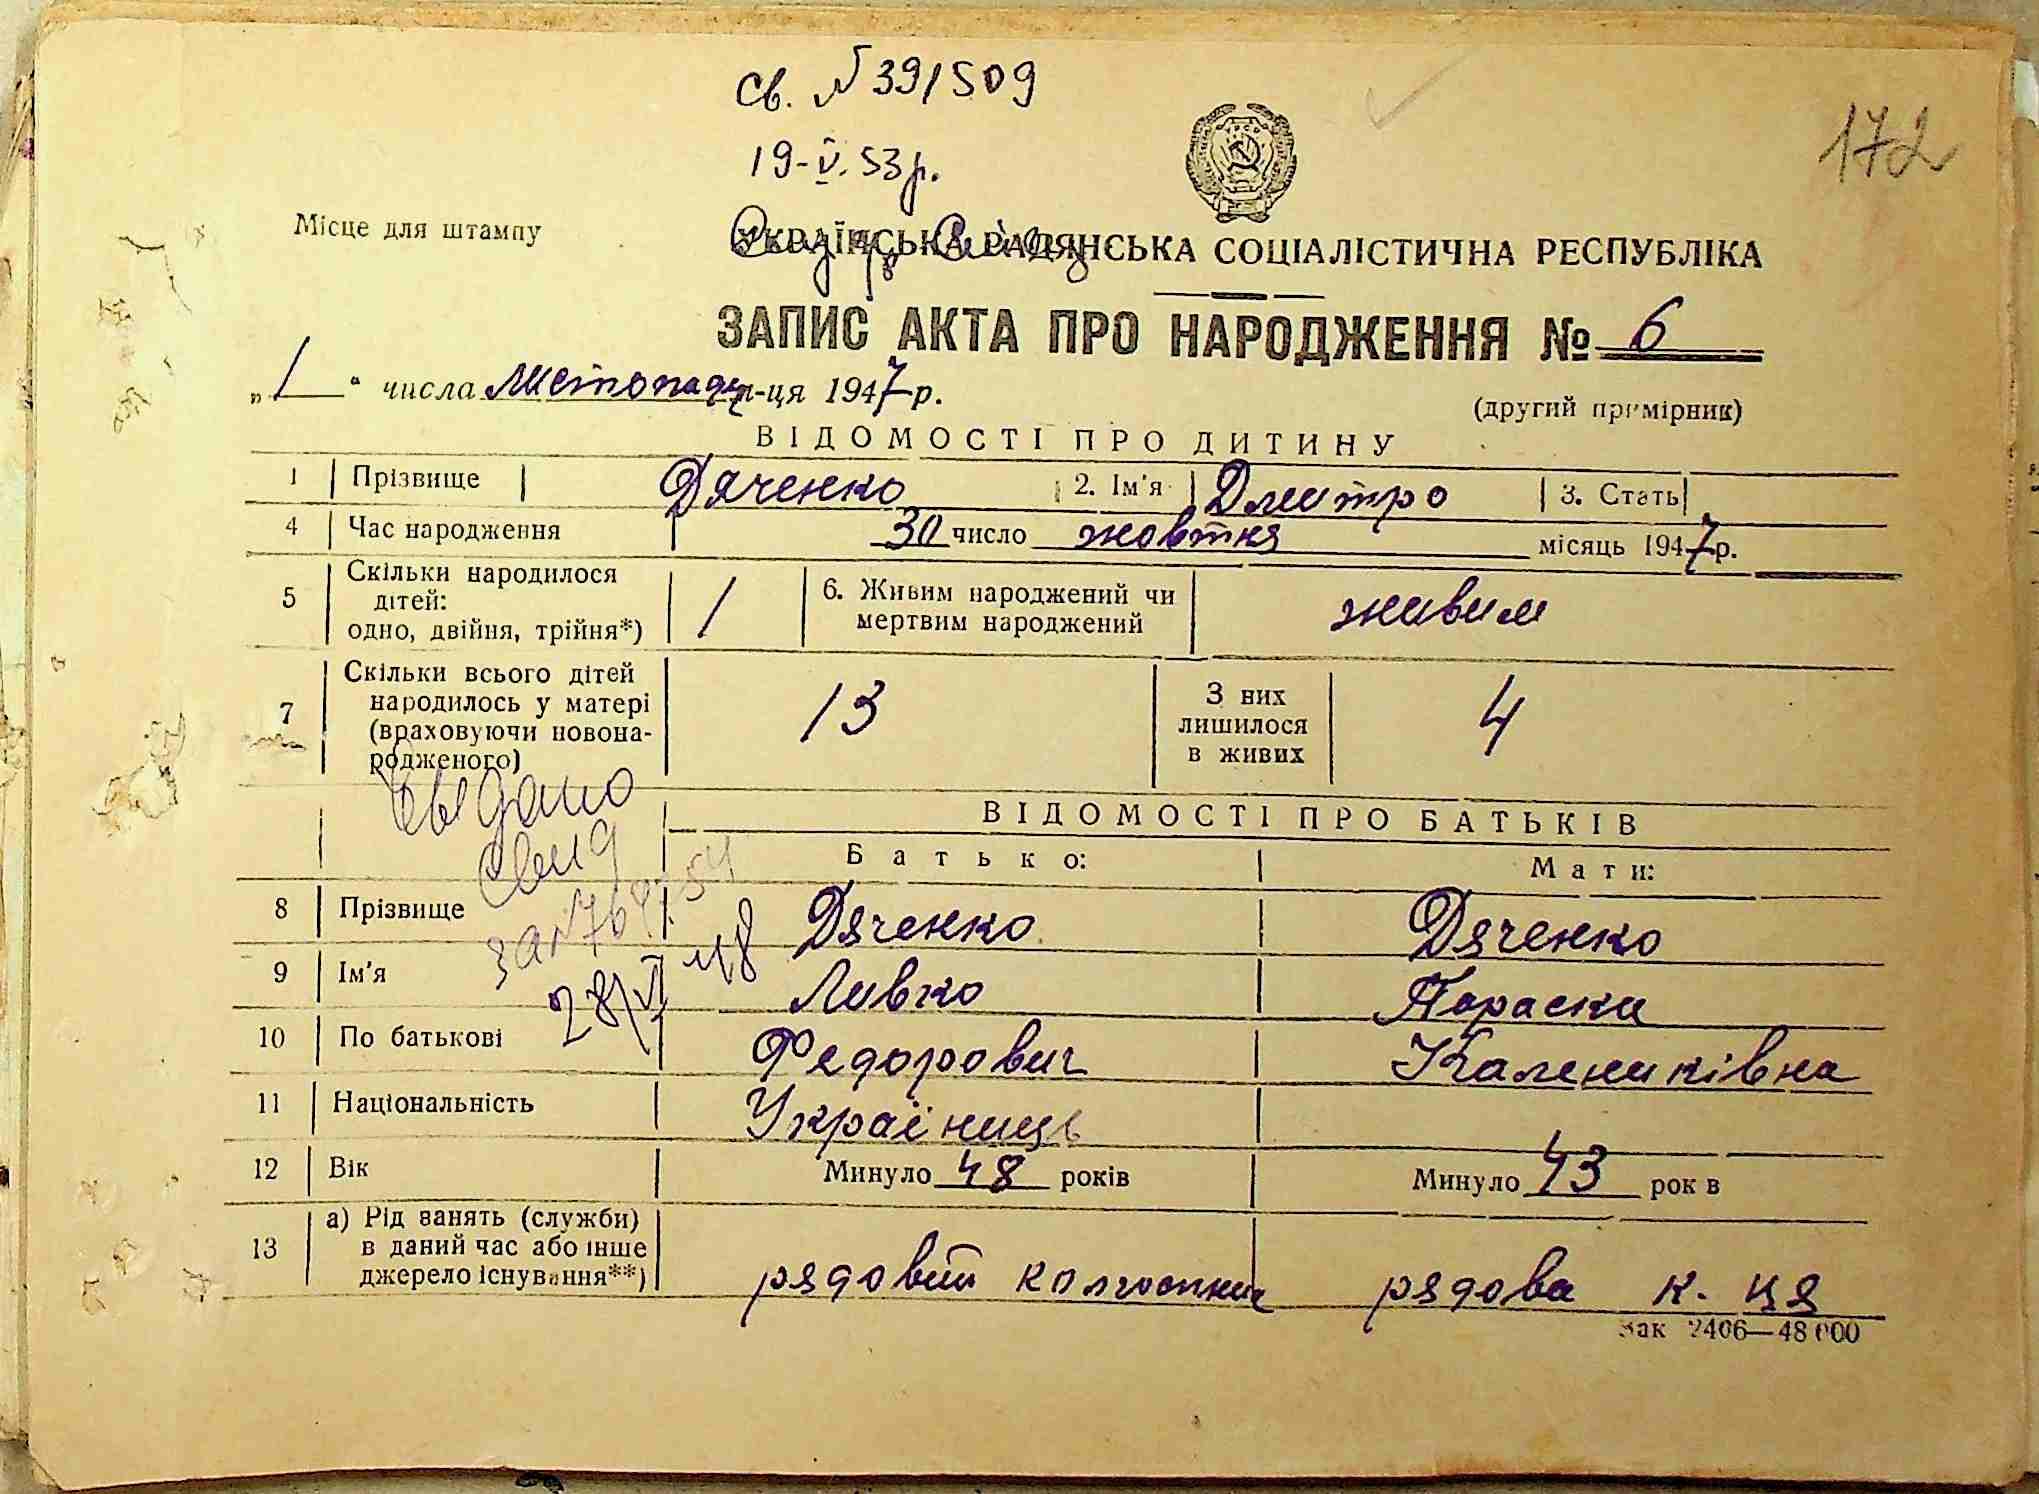 св. №391509
172
19-V.53р.
Місце для штампу
УКРАЇНСЬКА РАДЯНСЬКА СОЦІАЛІСТИЧНА РЕСПУБЛІКА
ЗАПИС АКТА ПРО НАРОДЖЕННЯ № 6
„1“ числа Листопаду м-ця 1947 р.
(другий примірник)
ВІДОМОСТІ ПРО ДИТИНУ
1 Прізвище Дяченко 2. Ім'я Дмитро 3. Стать
4 Час народження 30 число жовтня місяць 1947 р.
5 Скільки народилося дітей: одно, двійня, трійня*) 1 6. Живим народжений чи мертвим народжений живим
7 Скільки всього дітей народилось у матері (враховуючи новонародженого) 13 З них лишилося в живих 4
Выдано
свид
за №
28/VI 48
ВІДОМОСТІ ПРО БАТЬКІВ
Батько: Мати:
8 Прізвище Дяченко Дяченко
9 Ім'я Ливко Параска
10 По батькові Федорович Калениківна
11 Національність Українець
12 Вік Минуло 48 років Минуло 43 рок в
13 а) Рід занять (служби) в даний час або інше джерело існування**) рядовий колгоспник рядова к. ця
Зак 2406—48 000